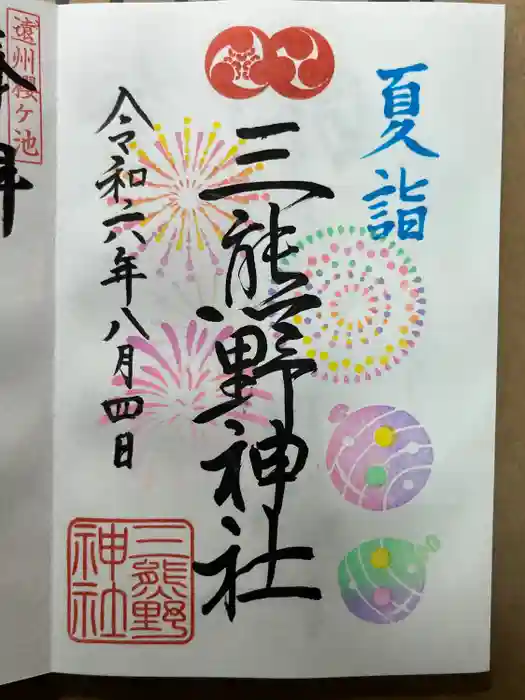 夏詣
三熊野神社
令和六年八月四日
三熊野
神社
遠州櫻ヶ池
拝